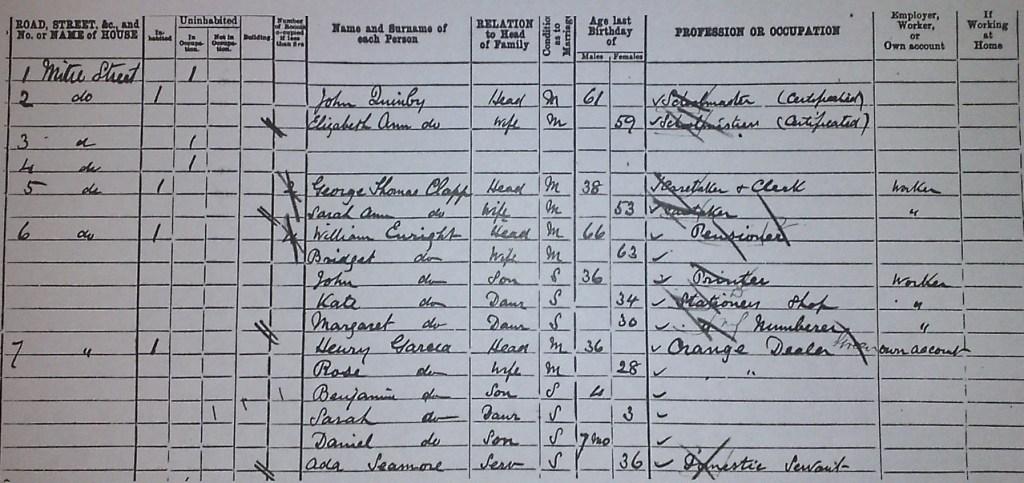 ROAD, STREET, &c., and No. or NAME of HOUSE In-habited Uninhabited In Occupa-tion. Not in Occupation. Building. Number of Rooms occupied if less than five Name and Surname of each Person RELATION to Head of Family Condition as to Marriage Age last Birthday of Males Females PROFESSION OR OCCUPATION Employer, Worker, or Own account If Working at Home
1 Mitre Street 1
2 do 1 John Quinby Head M 61 Schoolmaster (Certificated)
Elizabeth Ann do Wife M 59 Schoolmistress (Certificated)
3 do 1
4 do 1
5 do 1 George Thomas Clapp Head M 38 & Clerk Worker
Sarah Ann do Wife M 53 "
6 do 1 William Enright Head M 66 Pensioner
Bridget do Wife M 63
John do Son S 36 Printer Worker
Kate do Daur S 34 Stationers Shop "
Margaret do Daur S 30 " Numberer "
7 " 1 Henry Garcia Head M 36 Orange Dealer own account
Rose do Wife M 28 "
Benjamin do Son S 4
Sarah do Daur S 3
Daniel do Son S 7 mo
Ada Seamore Serv S 36 Domestic Servant